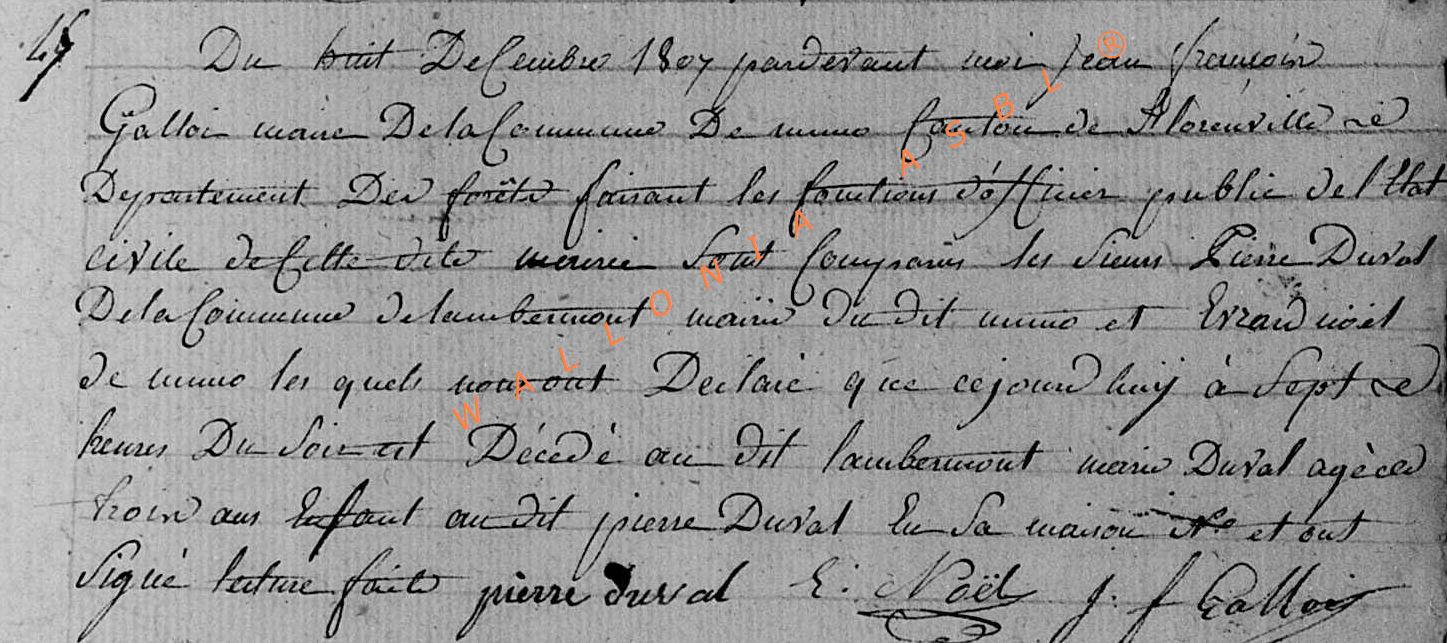 Du huit Decembre 1807 pardevant moi Jean françois
Galloi maire De la Commune De muno Canton de Florenville
Departement Des forêts faisant les fonctions d'officier public de l'Etat
civile de Cette dite mairie Sont Comparus les Sieurs Pierre Duval
De la Commune de lambermont mairie du dit muno et Evrard noël
de muno les quels nous ont Declaré que cejourd'huy à Sept
heures Du Soir est Décédé au dit lambermont marie Duval agée de
trois ans Enfant au dit pierre Duval En Sa maison N° et ont
Signé lecture faite pierre duval E: Noël J: f Galloi
WALLONIA ASBL ®